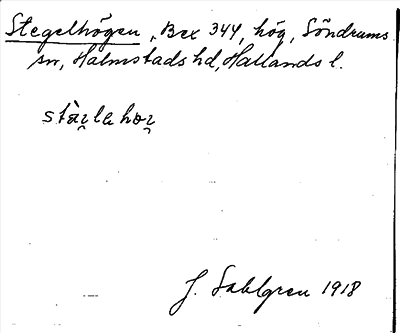 Stegelhögen, Bex 344, hög, Söndrums
sn, Halmstads hd, Hallands l.
stàı̯lehoı̯
J. Sahlgren 1918